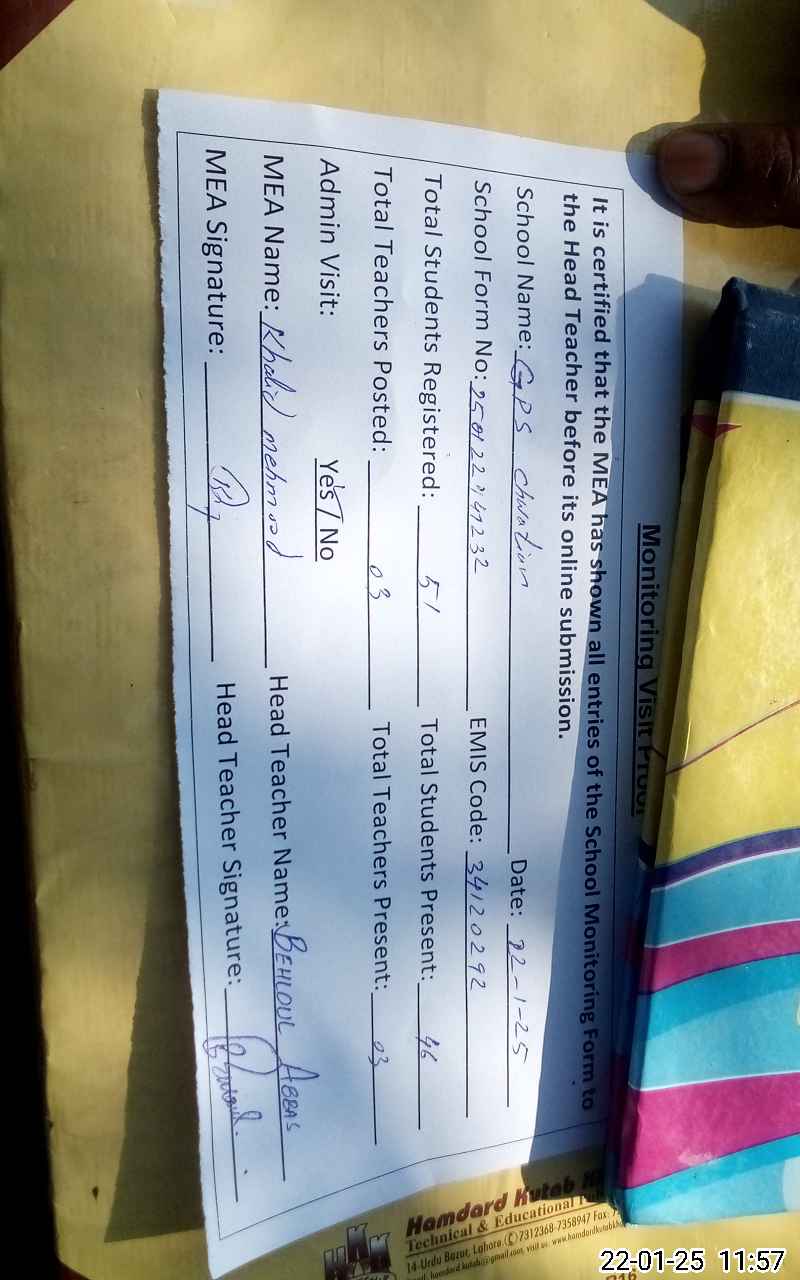 Monitoring Visit Proof
It is certified that the MEA has shown all entries of the School Monitoring Form to
the Head Teacher before its online submission.
School Name: GPS Date: 22-1-25
School Form No: EMIS Code: 34120292
Total Students Registered: 51 Total Students Present: 46
Total Teachers Posted: 03 Total Teachers Present: 03
Admin Visit: Yes / No
MEA Name: Khalid mehmood Head Teacher Name: BEHLOUL ABBAS
MEA Signature: Head Teacher Signature:
Hamdard Kutab
Technical & Educational
14-Urdu Bazar, Lahore. 7312368-7358947 Fax:
22-01-25 11:57